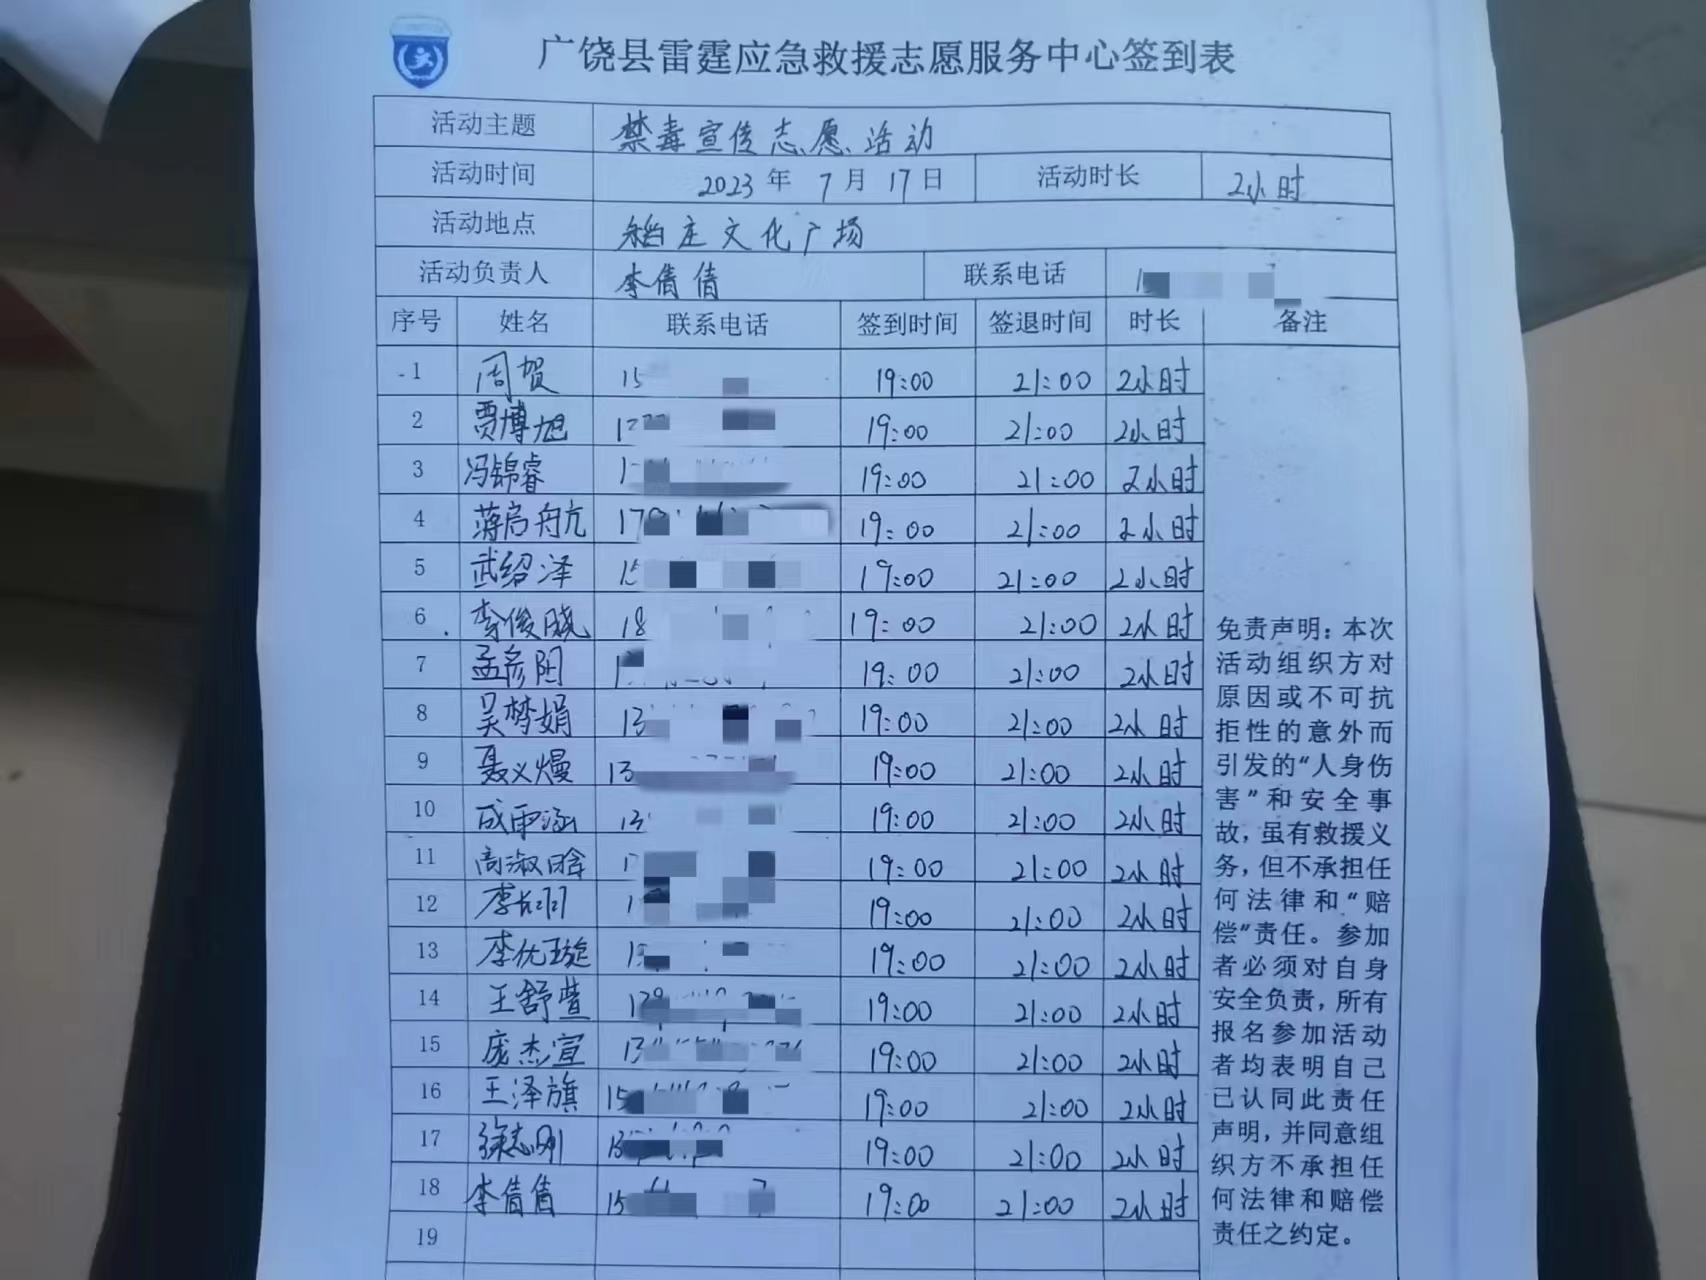 广饶县雷霆应急救援志愿服务中心签到表
活动主题 禁毒宣传志愿活动
活动时间 2023年 7月 17日 活动时长 2小时
活动地点 稻庄文化广场
活动负责人 李倩倩 联系电话 1
序号 姓名 联系电话 签到时间 签退时间 时长 备注
1 周贺 15 19:00 21:00 2小时
2 贾博旭 1 19:00 21:00 2小时
3 冯锦睿 1 19:00 21:00 2小时
4 蒋启舟亢 17 19:00 21:00 2小时
5 武绍泽 15 19:00 21:00 2小时
6 李俊晓 18 19:00 21:00 2小时
7 孟彦阳 1 19:00 21:00 2小时
8 吴梦娟 13 19:00 21:00 2小时
9 聂义熳 13 19:00 21:00 2小时
10 成雨涵 13 19:00 21:00 2小时
11 高淑晗 1 19:00 21:00 2小时
12 李长羽 1 19:00 21:00 2小时
13 李优璇 15 19:00 21:00 2小时
14 王舒萱 1 19:00 21:00 2小时
15 庞杰宣 13 19:00 21:00 2小时
16 王泽旗 15 19:00 21:00 2小时
17 徐志刚 13 19:00 21:00 2小时
18 李倩倩 15 19:00 21:00 2小时
19
免责声明：本次
活动组织方对
原因或不可抗
拒性的意外而
引发的“人身伤
害”和安全事
故，虽有救援义
务，但不承担任
何法律和“赔
偿”责任。参加
者必须对自身
安全负责，所有
报名参加活动
者均表明自己
已认同此责任
声明，并同意组
织方不承担任
何法律和赔偿
责任之约定。